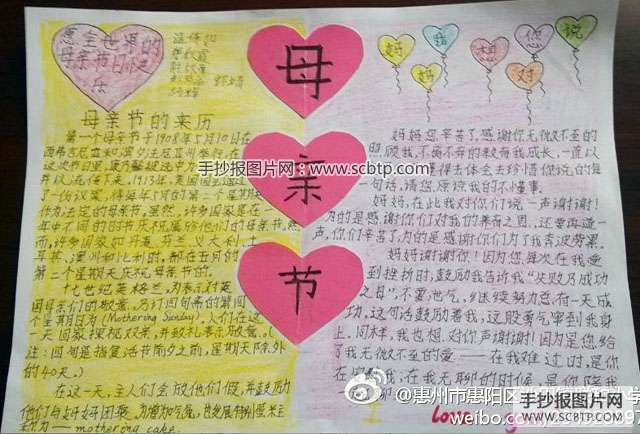 愿全世界的
母亲节日快
乐
母
亲
节
妈
妈
我
想
对
您
说
母亲节的来历
第一个母亲节于1908年5月10日在
西弗吉尼亚和宾夕法尼亚州举行，在
这次节日里，康乃馨被选中为
并以流传下来。1913年，美国国会通过了
一份议案，将每年5月的第二个星期天
作为法定的母亲节。虽然，许多国家是在
年中不同的时节庆祝属于他们的母亲节。然
而，许多国家如丹麦、芬兰、意大利、土
耳其、澳洲和比利时，都在五月的
第二个星期天庆祝母亲节的。
十七世纪英格兰，为表示对英
国母亲们的敬意，乃订四旬斋的第四
个星期日为(Mothering Sunday)，人们在这
一天回家探视双亲，并致礼表示敬意。(
注：四旬是指复活节前夕之前，星期天除外
的40天。)
在这一天，主人们会放他们假，并鼓励
他们与妈妈团聚
mothering cake.
妈妈您辛苦了，感谢你无微不至的
照顾我，不离不弃的教育我成长，一直以
得去体会去珍惜你说的每
一句话，请您原谅我的不懂事。
妈妈，在此我对你们说一声谢谢！
为的是感谢你们对我的养育之恩，还要再道一
声，你们辛苦了，为的是感谢你们为了我奔波劳累。
妈妈谢谢你！因为您每次在我受
到挫折时，鼓励我告诉我“失败乃成功
之母”，不要泄气，继续努力总有一天成
功，这句话鼓励着我，这股勇气牢到我身
上。同样，我也想对你声谢谢！因为是您给
了我无微不至的爱——在我难过时，是你
在安慰我，在我无聊的时候，是你陪我
Love
手抄报图片网：www.scbtp.com
@惠州市惠阳区
weibo.com/
手抄报图片网
WWW.SCBTP.COM